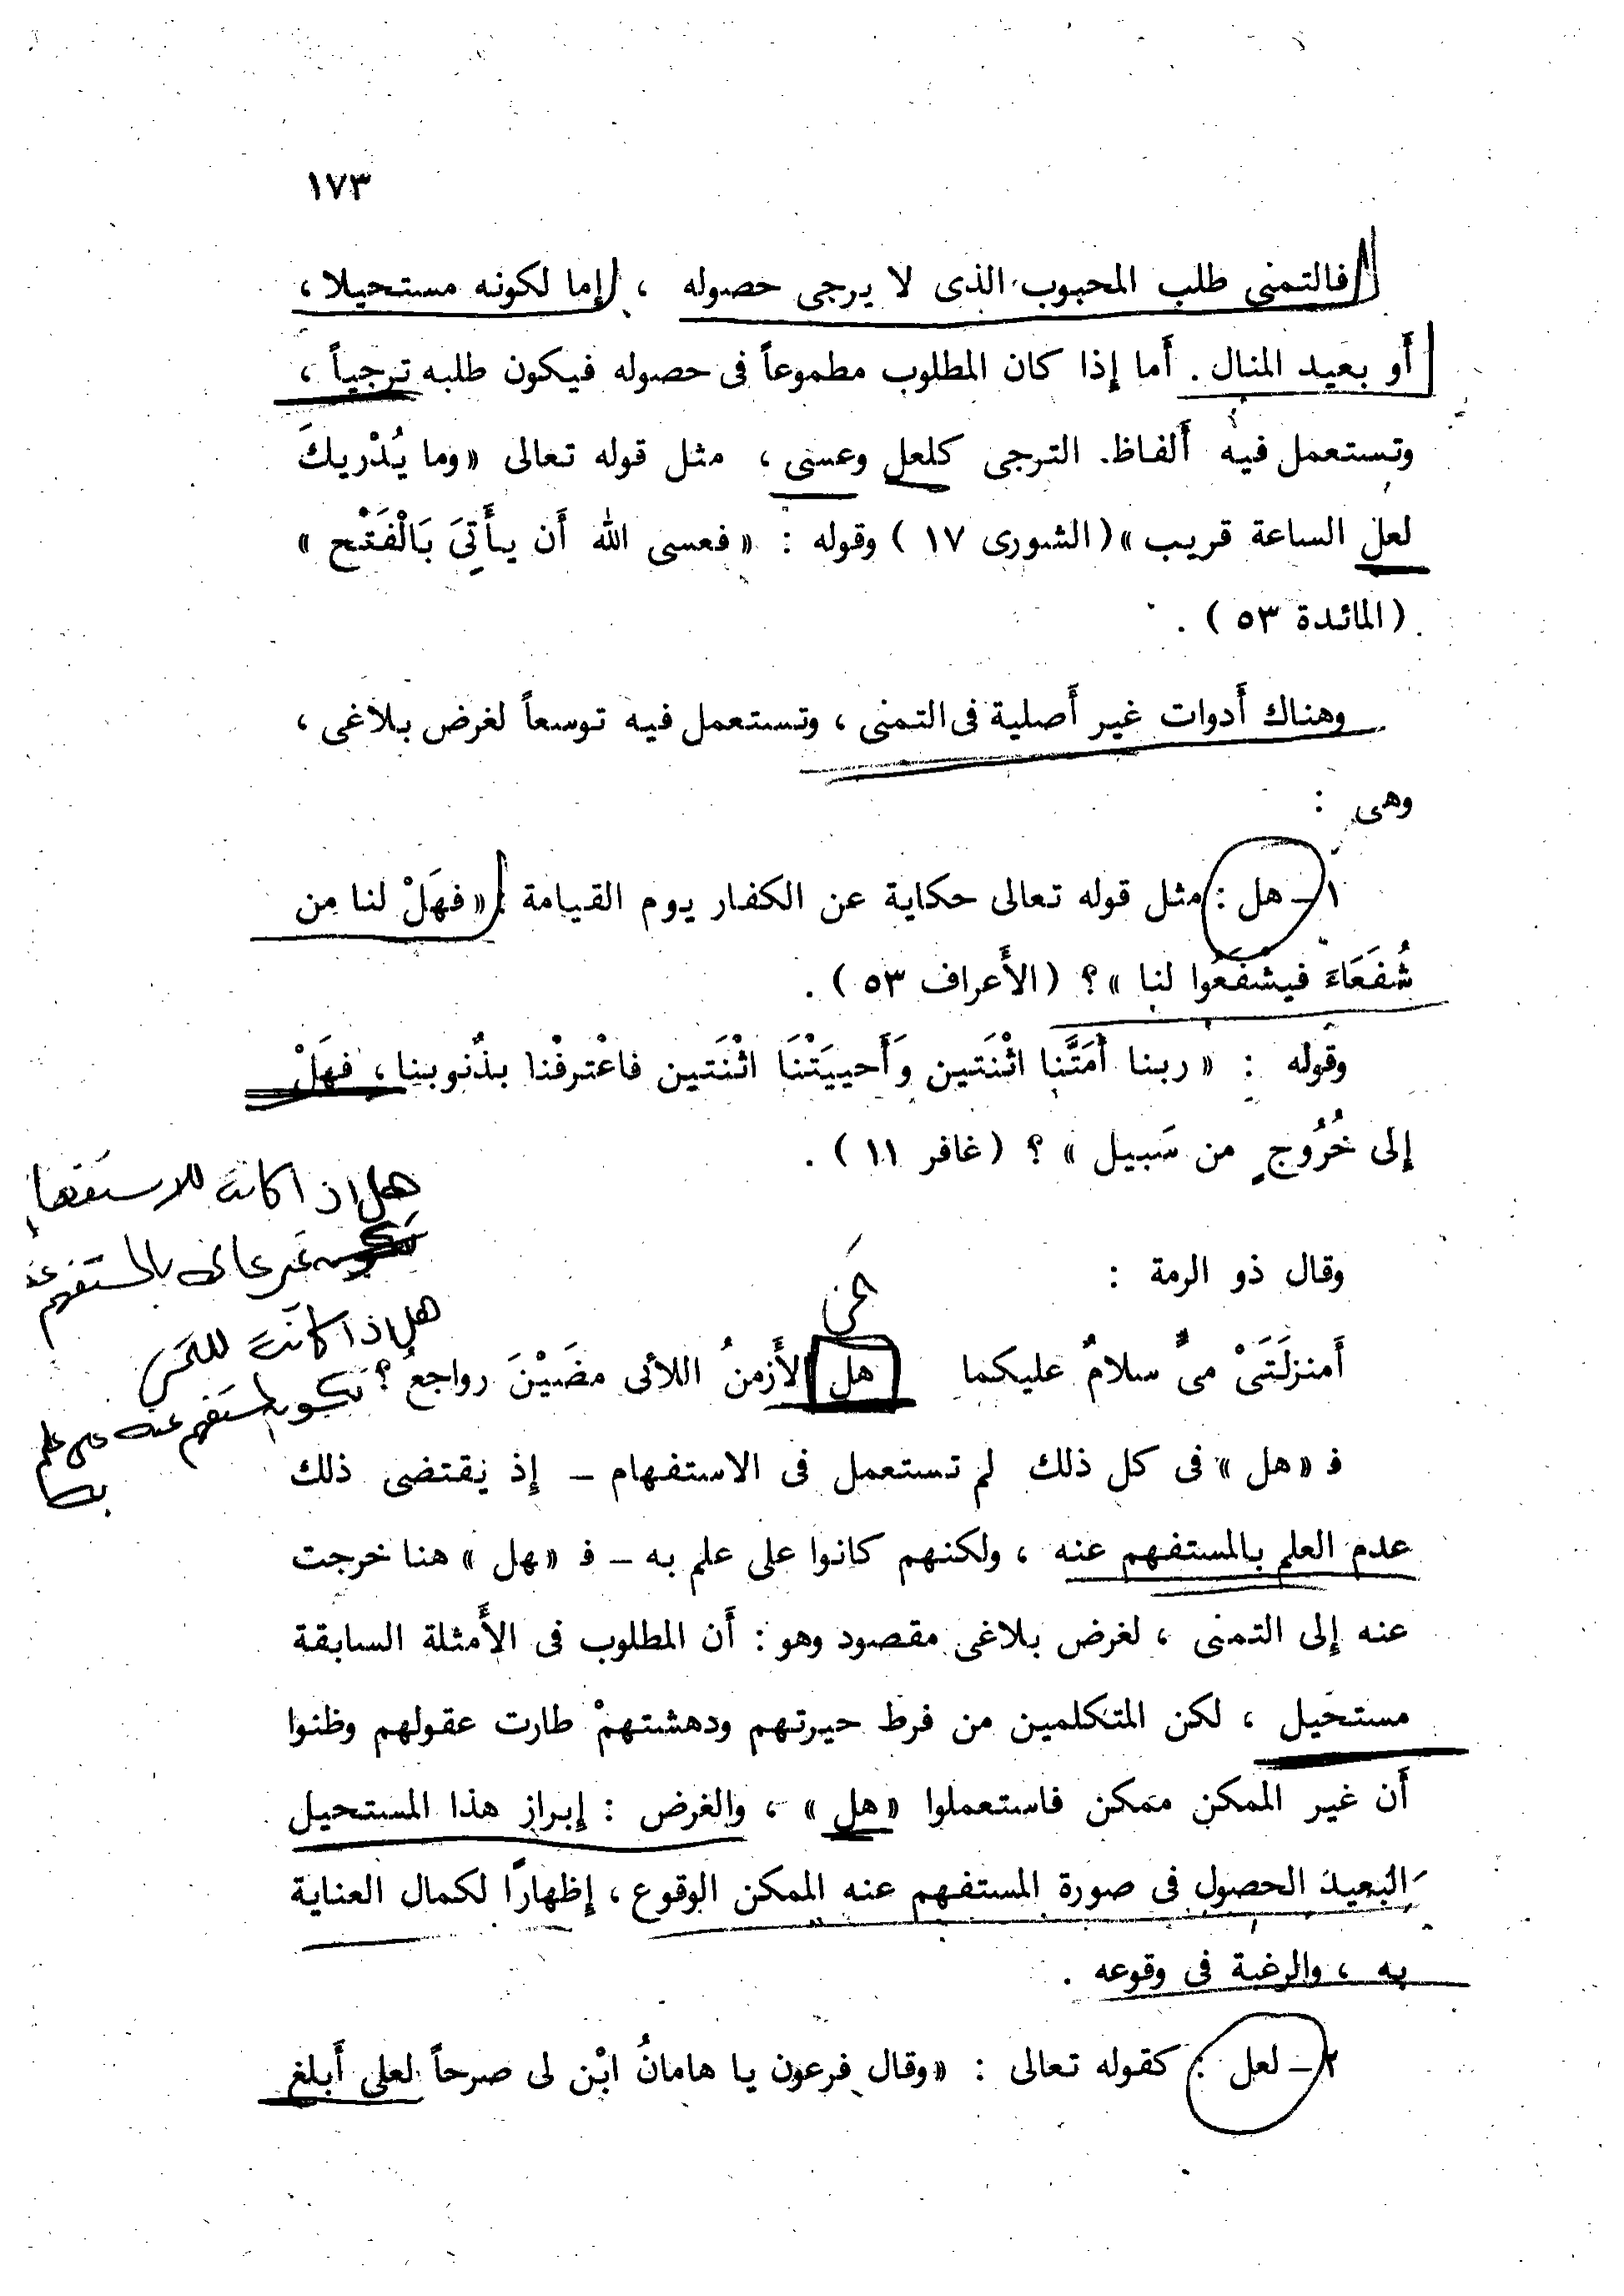 ١٧٣
فالتمنى طلب المحبوب الذى لا يرجى حصوله ، إما لكونه مستحيلا ،
أو بعيد المنال . أما إذا كان المطلوب مطموعاً فى حصوله فيكون طلبه ترجياً ،
وتستعمل فيه ألفاظ الترجى كلعل وعسى ، مثل قوله تعالى « وما يُدْريكَ
لعل الساعة قريب » ( الشورى ١٧ ) وقوله : « فعسى الله أن يأتِىَ بَالْفَتْح »
( المائدة ٥٣ ) .
وهناك أدوات غير أصلية فى التمنى ، وتستعمل فيه توسعاً لغرض بلاغى ،
وهى :
١ – هل : مثل قوله تعالى حكاية عن الكفار يوم القيامة : « فهَلْ لنا من
شُفَعَاءَ فيشْفَعُوا لنا » ؟ ( الأعراف ٥٣ ) .
وقوله : « ربنا أمَتَّنا اثْنَتين وَأَحييَتْنَا اثْنَتين فاعْترفْنا بذُنوبنا ، فهَلْ
إلى خُرُوجٍ من سَبيل » ؟ ( غافر ١١ ) .
هل اذا كانت للاستفهام
غير عالم بالمستفهم عنه
هل اذا كانت للتمني
تكون المستفهم عنه على علم
به
وقال ذو الرمة :
تمني
أَمنزلَتَىْ مىٍّ سلامٌ عليكما هل الأَزمنُ اللائى مضَيْنَ رواجعُ ؟
فـ « هل » فى كل ذلك لم تستعمل فى الاستفهام – إذ يقتضى ذلك
عدم العلم بالمستفهم عنه ، ولكنهم كانوا على علم به – فـ « هل » هنا خرجت
عنه إلى التمنى ، لغرض بلاغى مقصود وهو : أن المطلوب فى الأمثلة السابقة
مستحيل ، لكن المتكلمين من فرط حيرتهم ودهشتهمْ طارت عقولهم وظنوا
أن غير الممكن ممكن فاستعملوا « هل » ، والغرض : إبراز هذا المستحيل
البعيد الحصول فى صورة المستفهم عنه الممكن الوقوع ، إظهارًا لكمال العناية
به ، والرغبة فى وقوعه .
٢ – لعل : كقوله تعالى : « وقال فرعون يا هامانُ ابْن لى صرحاً لعلى أَبلغ